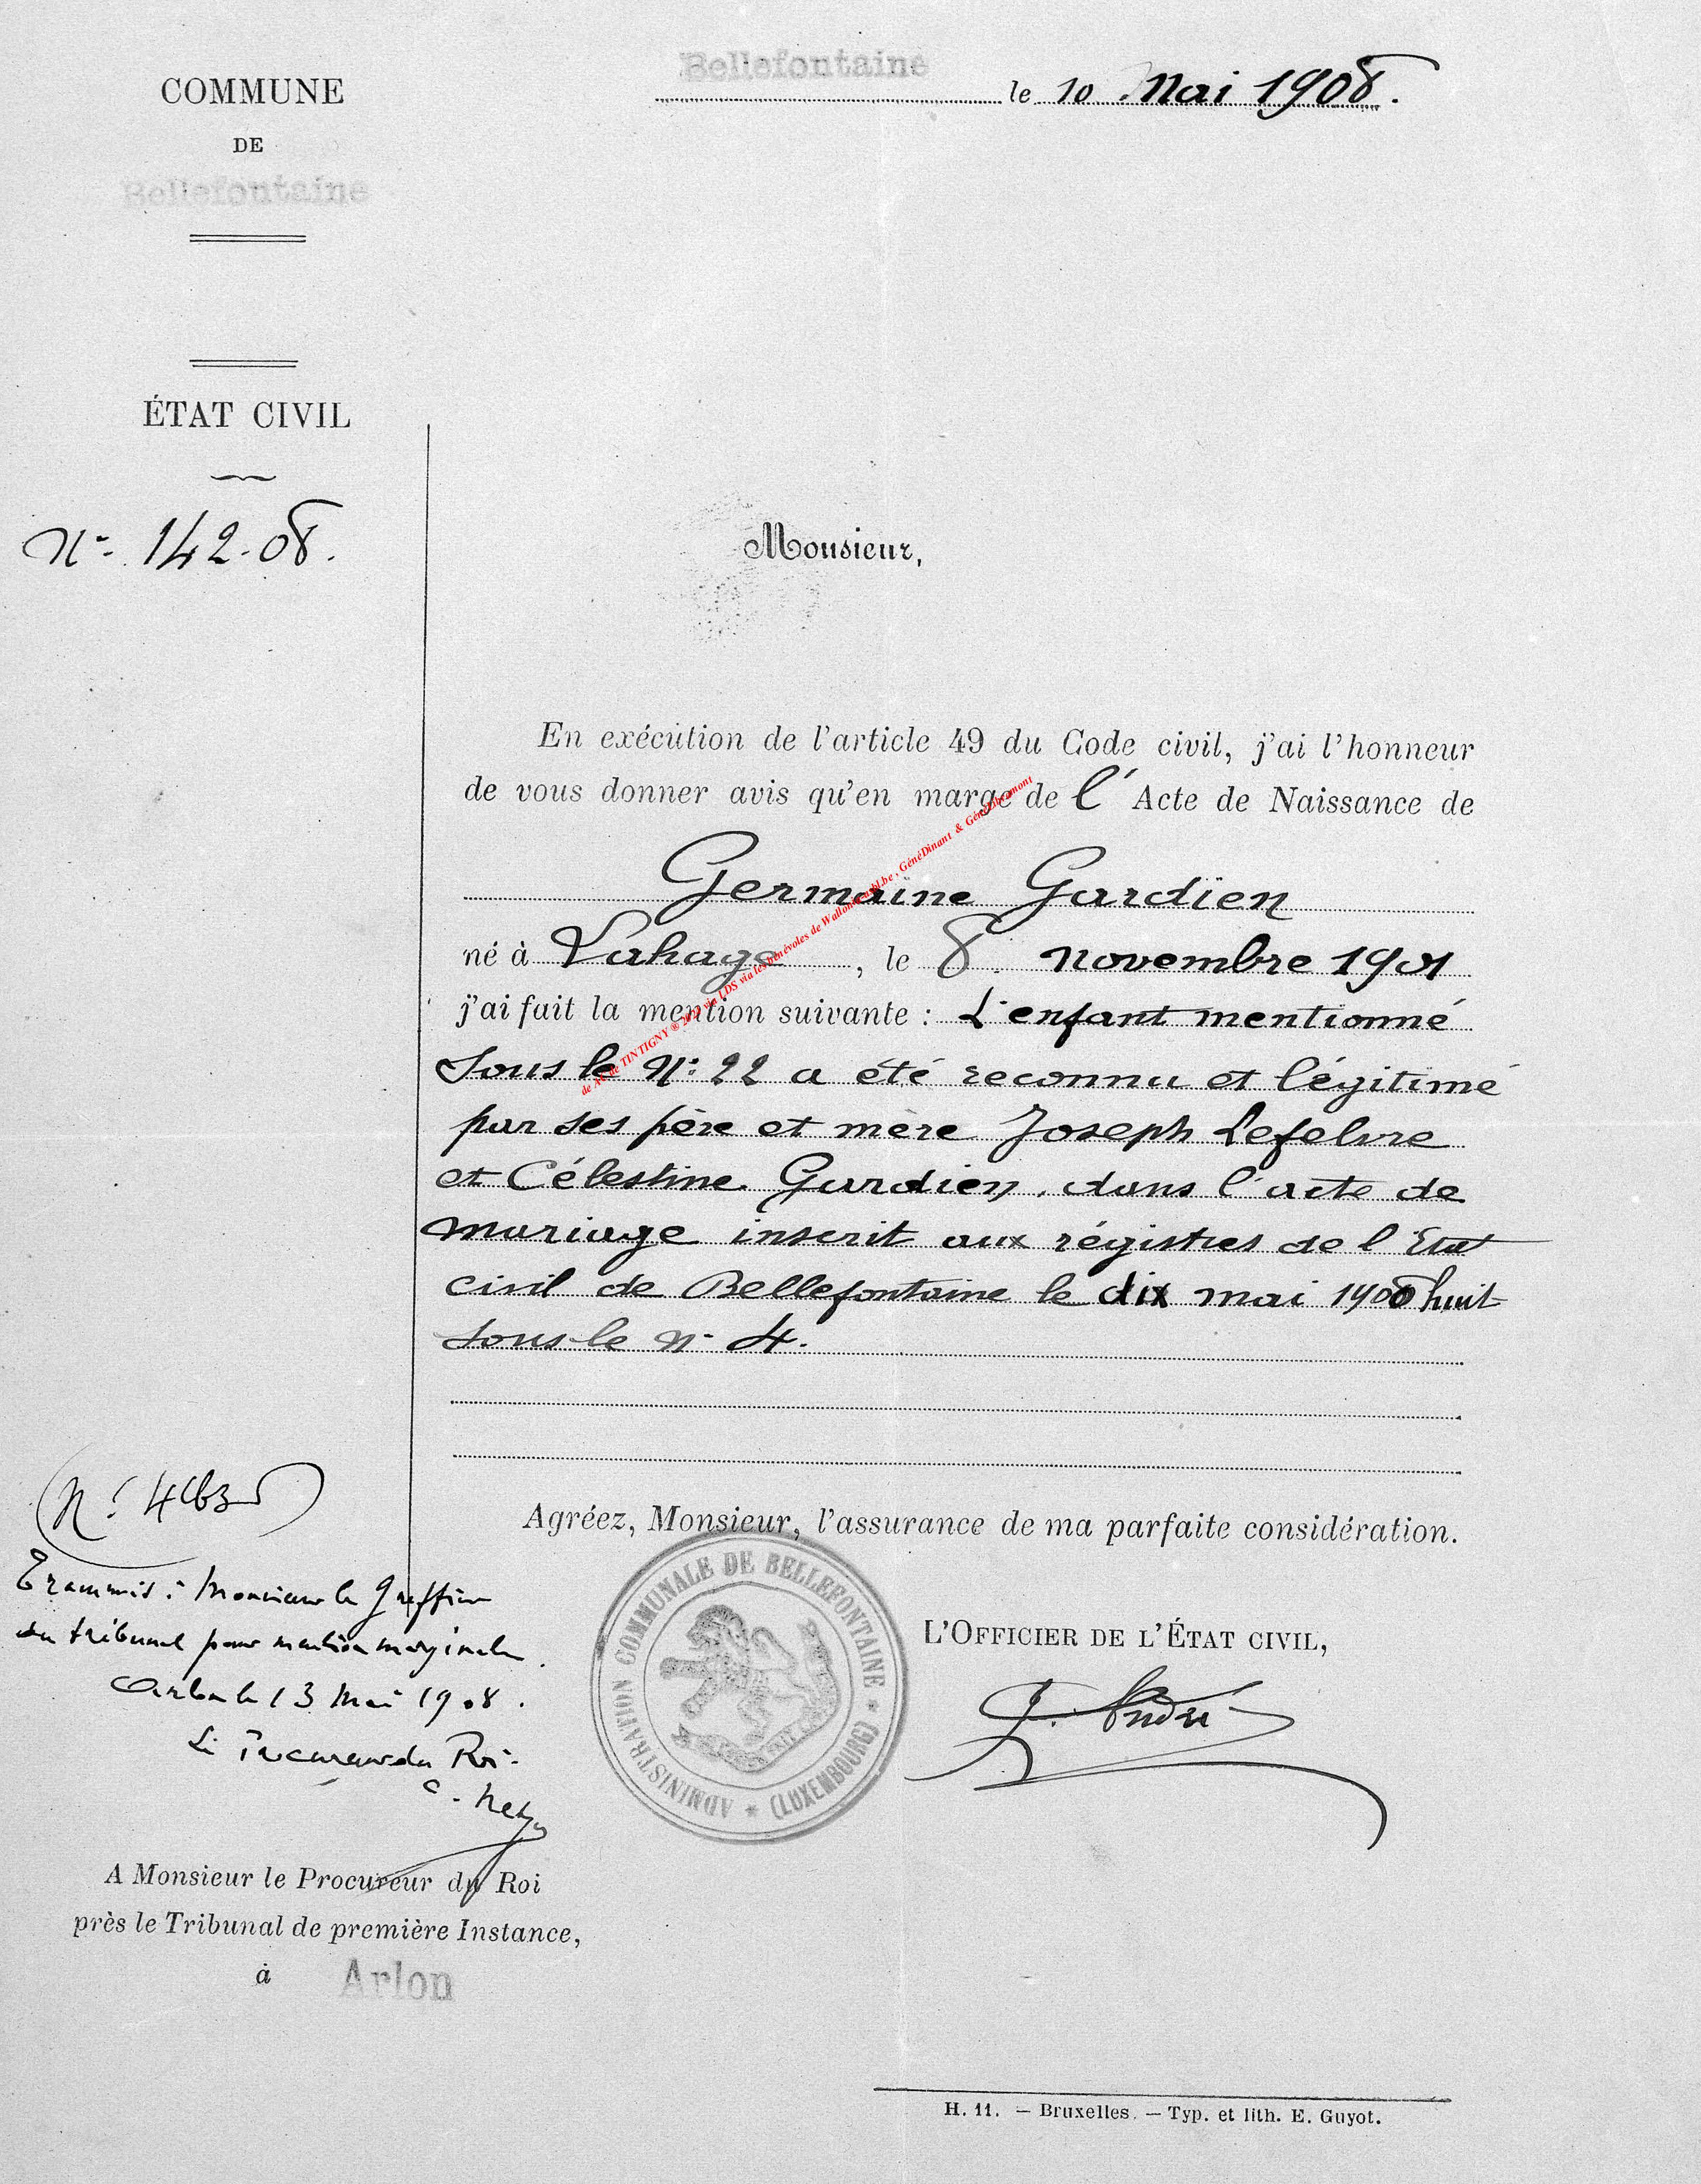 COMMUNE
DE
Bellefontaine
Bellefontaine le 10 Mai 1908.
ÉTAT CIVIL
N° 142-08.
Monsieur,
En exécution de l'article 49 du Code civil, j'ai l'honneur
de vous donner avis qu'en marge de l' Acte de Naissance de
Germaine Gardien
né à Lahage, le 8 novembre 1901
j'ai fait la mention suivante : L'enfant mentionné
sous le N° 22 a été reconnu et légitimé
par ses père et mère Joseph Lefebvre
et Célestine Gardien, dans l'acte de
mariage inscrit aux régistres de l'Etat
civil de Bellefontaine le dix mai 1908 huit
sous le n° 4.
Agréez, Monsieur, l'assurance de ma parfaite considération.
L'OFFICIER DE L'ÉTAT CIVIL,
J. André
ADMINISTRATION COMMUNALE DE BELLEFONTAINE * (LUXEMBOURG) *
N°
Transmis à Monsieur le Greffier
du tribunal pour mention marginale.
Arlon le 13 Mai 1908.
Le Procureur du Roi
A Monsieur le Procureur du Roi
près le Tribunal de première Instance,
à Arlon
H. 11. — Bruxelles. — Typ. et lith. E. Guyot.
de AC de TINTIGNY ® via LDS via les bénévoles de Wallonie asbl.be, GénéDinant & GénéLibramont